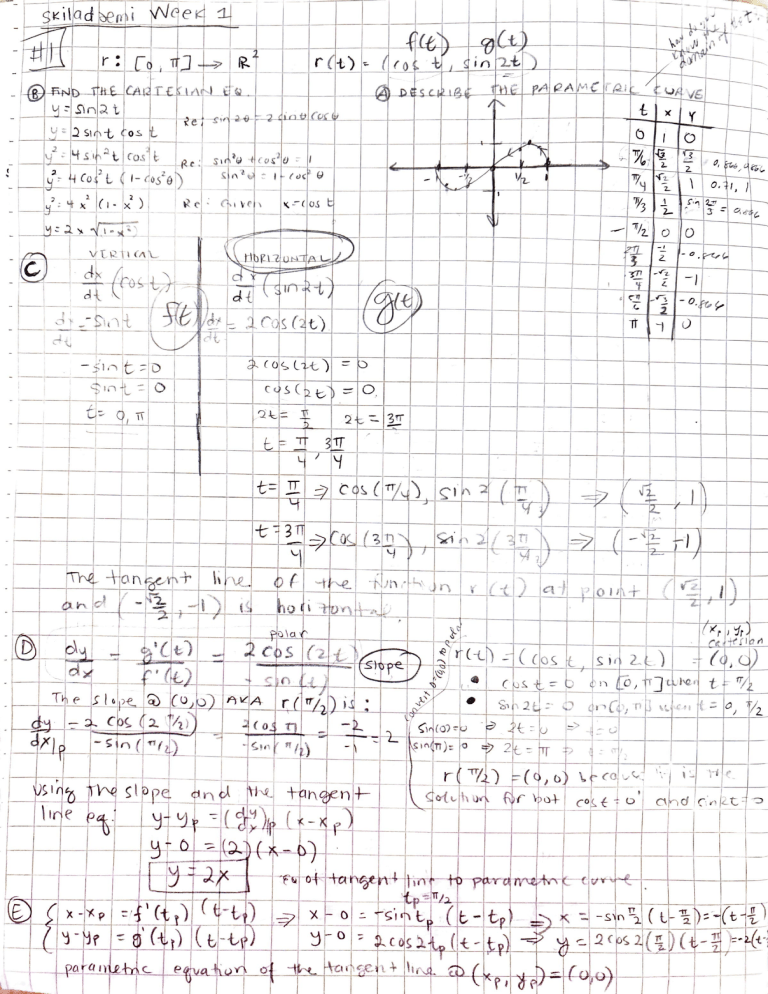 skilademi Week 1
#1
r: [0, π] → R²
f(t) g(t)
r(t) = (cos t, sin 2t)
how do you know the domain of t
Ⓑ FIND THE CARTESIAN EQ.
y = sin 2t
Re: sin 2θ = 2 sinθ cosθ
y = 2 sin t cos t
y² = 4 sin² t cos² t
Re: sin²θ + cos²θ = 1
y² = 4 cos² t (1-cos²θ)
sin²θ = 1-cos²θ
y² = 4x² (1-x²)
Re: Given x = cos t
y = 2x √(1-x²)
Ⓐ DESCRIBE THE PARAMETRIC CURVE
-1/2 1/2 1
t x y
0 1 0
π/6 √3/2 √3/2 0.866, 0.866
π/4 √2/2 1 0.71, 1
π/3 1/2 sin 2π/3 = 0.866
π/2 0 0
2π/3 -1/2 -0.866
3π/4 -√2/2 -1
5π/6 -√3/2 -0.866
π -1 0
Ⓒ VERTICAL
dx/dt (cos t)
dx/dt = -sin t
f(t)
-sin t = 0
sin t = 0
t = 0, π
HORIZONTAL
dx/dt (sin 2t)
dx/dt = 2 cos(2t)
g(t)
2 cos(2t) = 0
cos(2t) = 0
2t = π/2 2t = 3π/2
t = π/4, 3π/4
t = π/4 ⇒ cos(π/4), sin 2(π/4) ⇒ (√2/2, 1)
t = 3π/4 ⇒ cos(3π/4), sin 2(3π/4) ⇒ (-√2/2, -1)
The tangent line of the function r(t) at point (√2/2, 1)
and (-√2/2, -1) is horizontal.
Ⓓ dy/dx = g'(t)/f'(t) = 2 cos(2t)/-sin(t)
polar
slope
The slope @ (0,0) AKA r(π/2) is:
dy/dx|p = 2 cos(2 π/2)/-sin(π/2) = 2cos π/-sin(π/2) = -2/-1 = 2
(xp, yp)
cartesian
convert (0,0) to polar
r(t) = (cos t, sin 2t) = (0,0)
• cos t = 0 on [0, π] when t = π/2
• sin 2t = 0 on [0, π] when t = 0, π/2
sin(0) = 0 ⇒ 2t = 0 ⇒ t = 0
sin(π) = 0 ⇒ 2t = π ⇒ t = π/2
r(π/2) = (0,0) because is the
solution for bot cos t = 0 and sin 2t = 0
using the slope and the tangent
line eq: y-yp = (dy/dx)|p (x-xp)
y-0 = (2)(x-0)
y = 2x
EQ of tangent line to parametric curve.
tp = π/2
Ⓔ { x-xp = f'(tp) (t-tp) ⇒ x-0 = -sin tp (t-tp) ⇒ x = -sin π/2 (t-π/2) = -(t-π/2)
{ y-yp = g'(tp) (t-tp) y-0 = 2cos2tp (t-tp) ⇒ y = 2cos2(π/2)(t-π/2) = -2(t-
parametric equation of the tangent line @ (xp, yp) = (0,0)